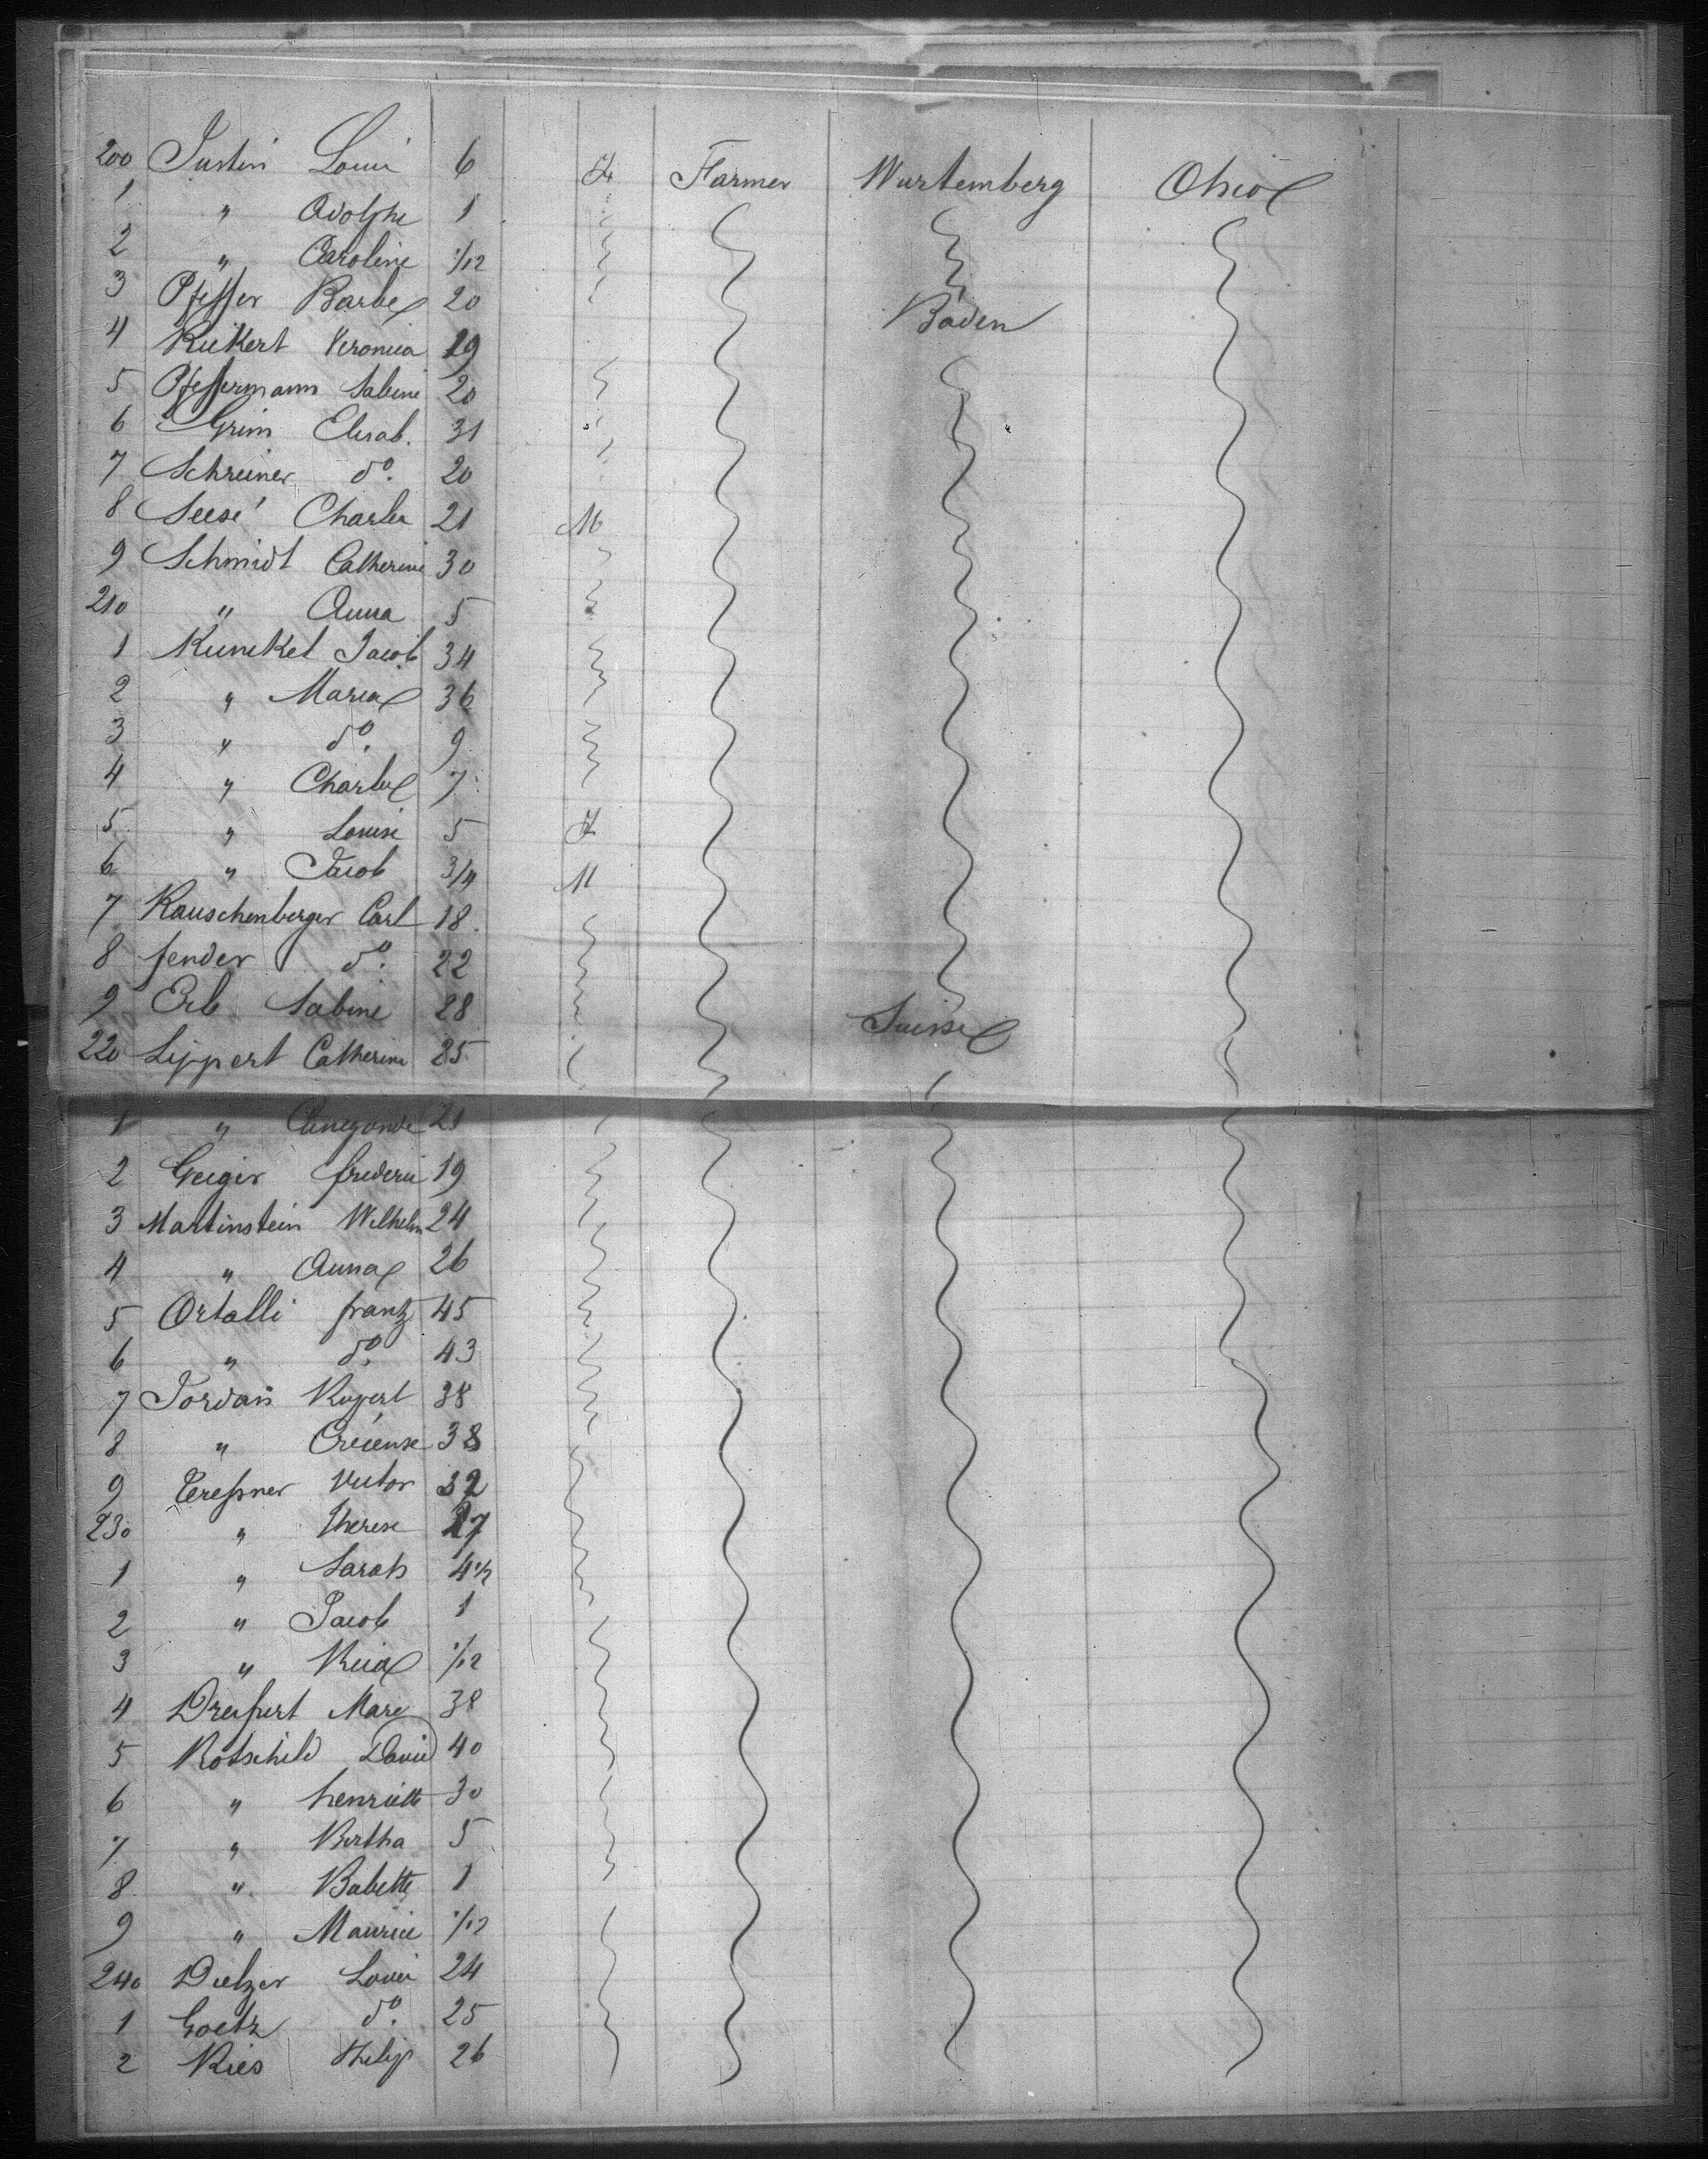 200 Justin Louis 6 F Farmer Wurtemberg Ohio
1 " Adolphe 1
2 " Caroline 1/12
3 Pfeffer Barbe 20 Baden
4 Ruckert Veronica 29
5 Pfeffermann Sabine 20
6 Grim Elisab. 31
7 Schreiner do. 20
8 Seesé Charles 21 M
9 Schmidt Catherine 30
210 " Anna 5
1 Kunckel Jacob 34
2 " Maria 36
3 " do. 9
4 " Charles 7
5 " Louise 5 F
6 " Jacob 3/4 M
7 Rauschenberger Carl 18
8 fender do. 22
9 Erb Sabine 28 Suisse
220 Lippert Catherine 25
1 " Cunegonde 21
2 Geiger frederic 19
3 Martinstein Wilhelm 24
4 " Anna 26
5 Ortalli frantz 45
6 " do. 43
7 Jordan Rupert 38
8 " Crécense 38
9 Victor 32
230 " Therese 27
1 " Sarah 4 1/2
2 " Jacob 1
3 " 1/12
4 Marc 38
5 Rotschild David 40
6 " henriette 30
7 " Bertha 5
8 " Babette 1
9 " Maurice 1/12
240 Louis 24
1 Goetz do. 25
2 Ries Philip 26